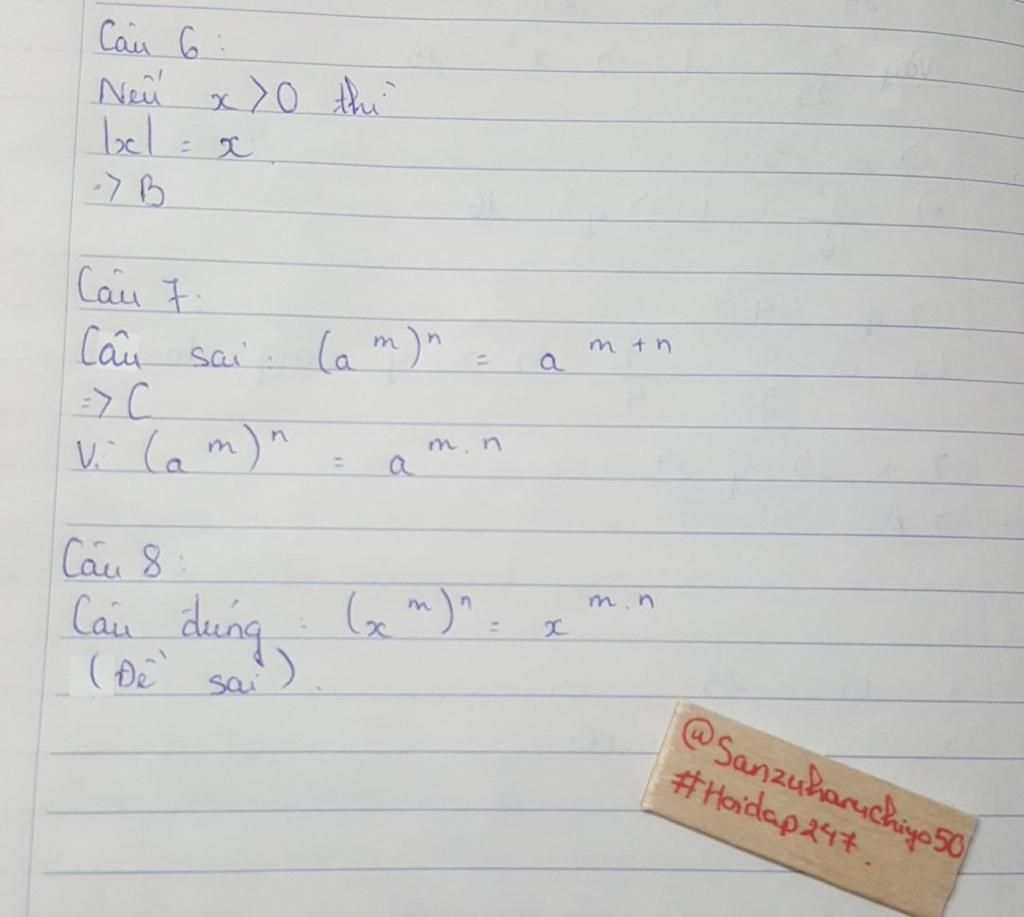 Câu 6 :
Nếu x > 0 thì
|x| = x
=> B
Câu 7 :
Câu sai : (a^m)^n = a^{m + n}
=> C
Vì (a^m)^n = a^{m . n}
Câu 8 :
Câu đúng : (x^m)^n = x^{m . n}
(Đề sai).
@Sanzuharuchiyo50
#Hoidap247.